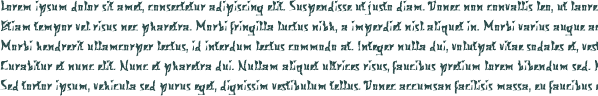 Lorem ipsum dolor sit amet, consectetur adipiscing elit. Suspendisse ut justo diam. Donec non convallis leo, ut laore
Etiam tempor vel risus nec pharetra. Morbi fringilla luctus nibh, a imperdiet nisl aliquet in. Morbi varius augue ar
Morbi hendrerit ullamcorper lectus, id interdum lectus commodo at. Integer nulla dui, volutpat vitae sodales et, vest
Curabitur et nunc elit. Nunc et pharetra dui. Nullam aliquet ultrices risus, faucibus pretium lorem bibendum sed.
Sed tortor ipsum, vehicula sed purus eget, dignissim vestibulum tellus. Donec accumsan facilisis massa, eu faucibus